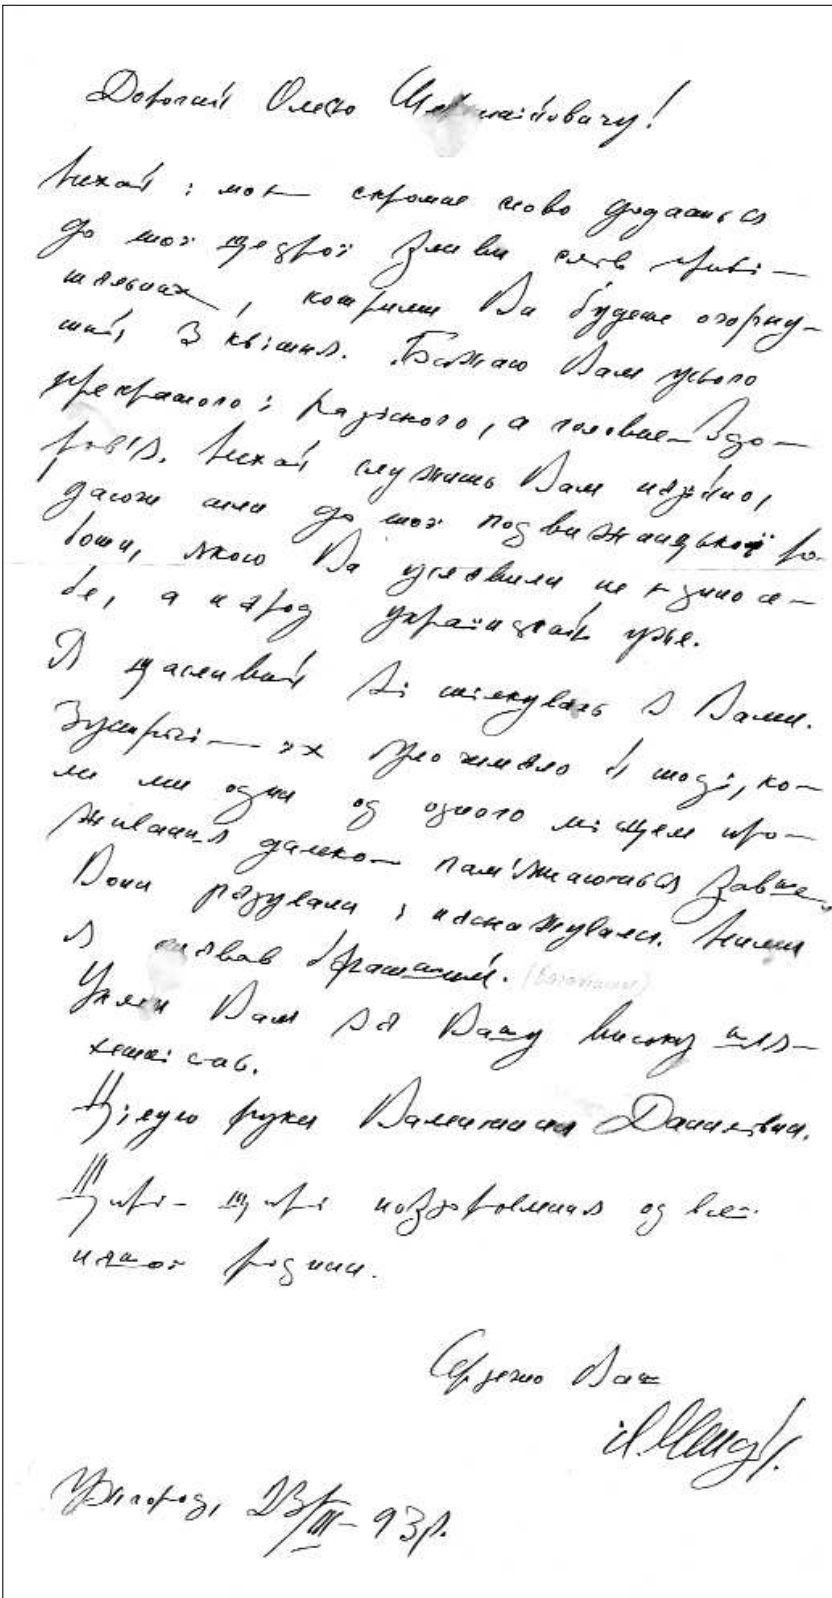 Дорогий Олексо Мишанировичу!
Нехай і моє скромне слово додасться
до тої щедрої зливи слів приві-
тальних, котрими Ви будете огорну-
тий 3 квітня. Бажаю Вам усього
прекрасного і радісного, а головне – здо-
ров'я. Нехай служить Вам надійно,
дасть сили до тої подвижницької ро-
боти, якою Ви уславили не єдино се-
бе, а народ український увесь.
Я щасливий, що спілкуюсь з Вами.
Зустрічі – їх чимало й тоді, ко-
ли ми один од одного місцем про-
живання далеко – пам'ятаються завше.
Вони радували і наснажували. Ними
я ставав багатший. (Багатшим)
Уклін Вам за Вашу високу шля-
хетність.
Цілую руки Валентини Данилівни.
Щирі-щирі поздоровлення од всієї
нашої родини.
Сердечно Ваш
Ужгород, 23/III-93р.